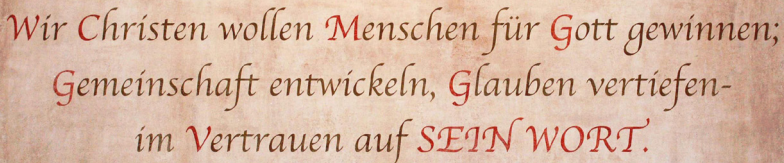 Wir Christen wollen Menschen für Gott gewinnen;
Gemeinschaft entwickeln, Glauben vertiefen-
im Vertrauen auf SEIN WORT.